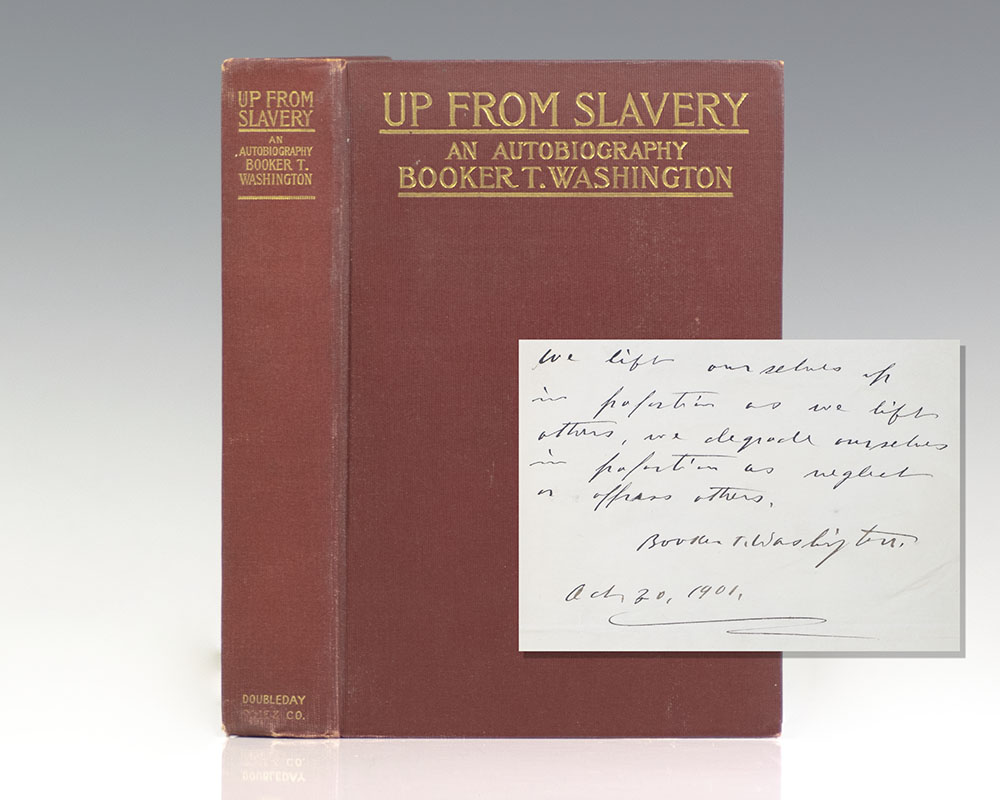 UP FROM
SLAVERY
AN
AUTOBIOGRAPHY
BOOKER T.
WASHINGTON
DOUBLEDAY
CO.
UP FROM SLAVERY
AN AUTOBIOGRAPHY
BOOKER T. WASHINGTON
We lift ourselves up
in proportion as we lift
others, we degrade ourselves
in proportion as neglect
or oppress others.
Booker T. Washington.
Oct, 20, 1901.